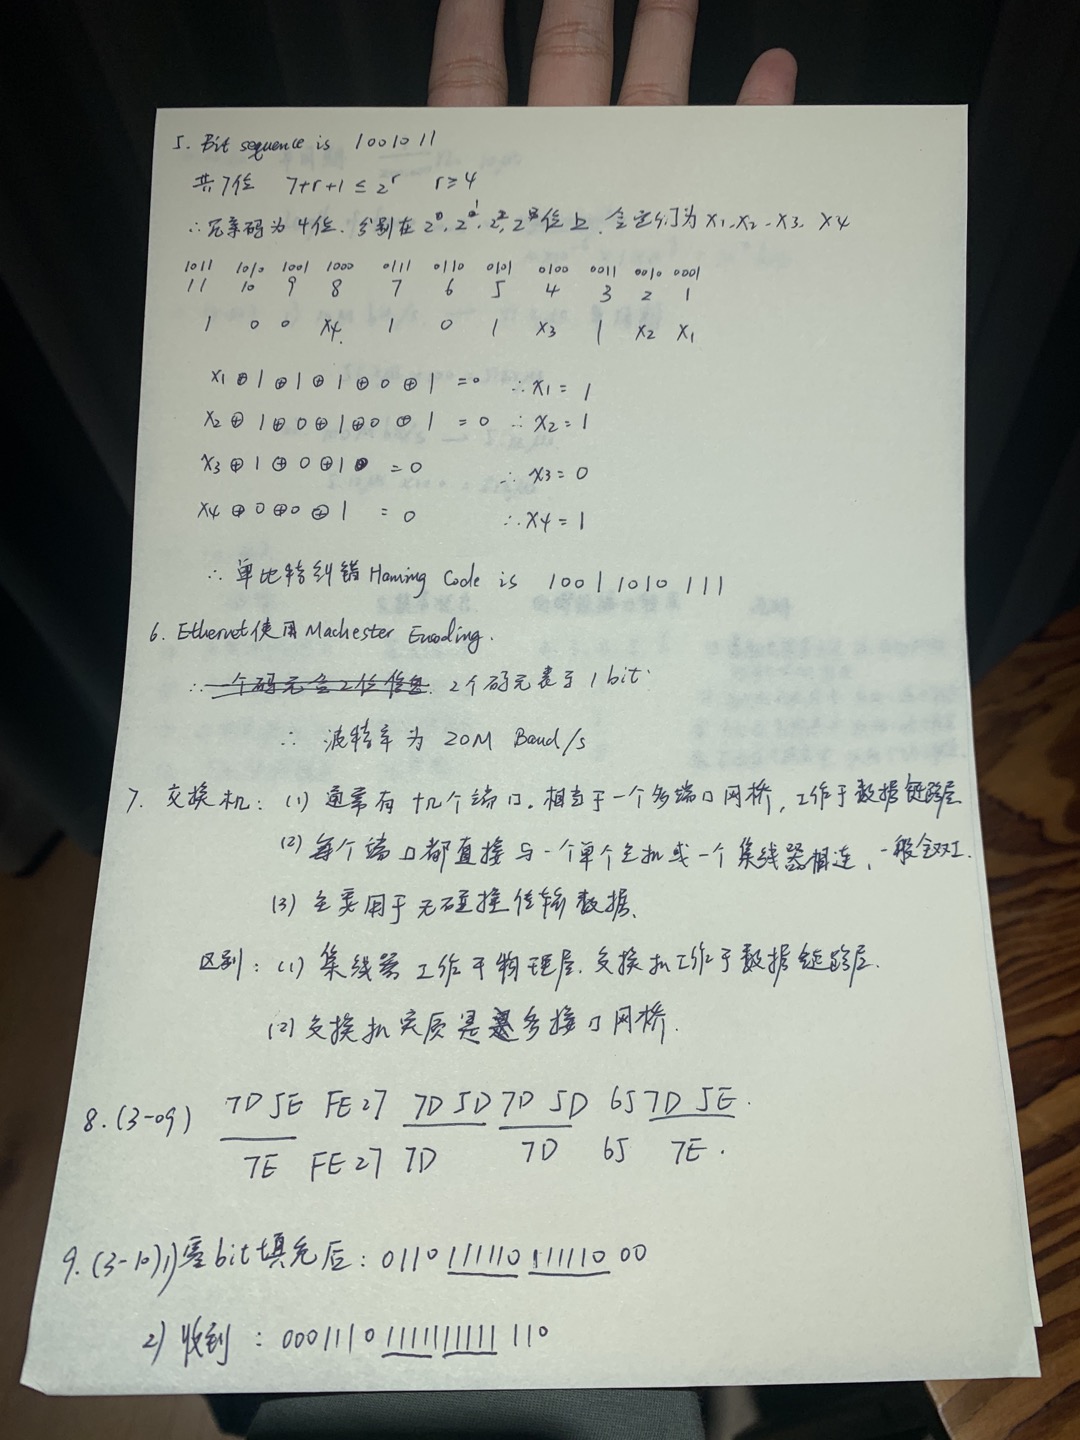 5. Bit sequence is 1001011
共7位 7+r+1 ≤ 2^r r≥4
∴冗余码为4位.分别在2^0, 2^1, 2^2, 2^3位上,令它们为X1、X2、X3、X4
1011 1010 1001 1000 0111 0110 0101 0100 0011 0010 0001
11 10 9 8 7 6 5 4 3 2 1
1 0 0 X4. 1 0 1 X3 1 X2 X1
X1⊕1⊕1⊕1⊕0⊕1=0 ∴X1=1
X2⊕1⊕0⊕1⊕0⊕1=0 ∴X2=1
X3⊕1⊕0⊕1=0 ∴X3=0
X4⊕0⊕0⊕1=0 ∴X4=1
∴单比特纠错Haming Code is 10011010111
6. Ethernet使用Machester Encoding.
∴一个码元含2位信息. 2个码元表示1bit.
∴ 波特率为 20M Baud/s
7. 交换机:(1) 通常有十几个端口.相当于一个多端口网桥,工作于数据链路层
(2) 每个端口都直接与一个单个主机或一个集线器相连,一般全双工.
(3) 主要用于无碰撞传输数据.
区别:(1) 集线器工作于物理层.交换机工作于数据链路层.
(2)交换机实质是多接口网桥.
8.(3-09) 7D 5E FE 27 7D 5D 7D 5D 65 7D 5E.
7E FE 27 7D 7D 65 7E.
9.(3-10)1)零bit填充后:011011111011111000
2)收到:00011101111111111110